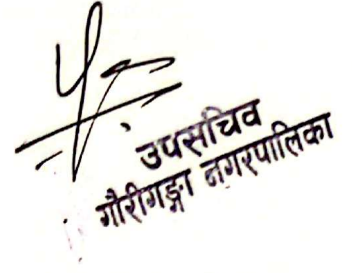 उपसचिव
गौरीगङ्गा नगरपालिका